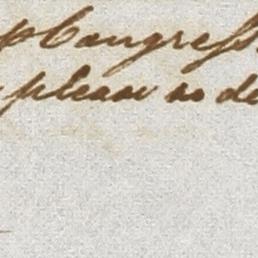 Congress
please to de